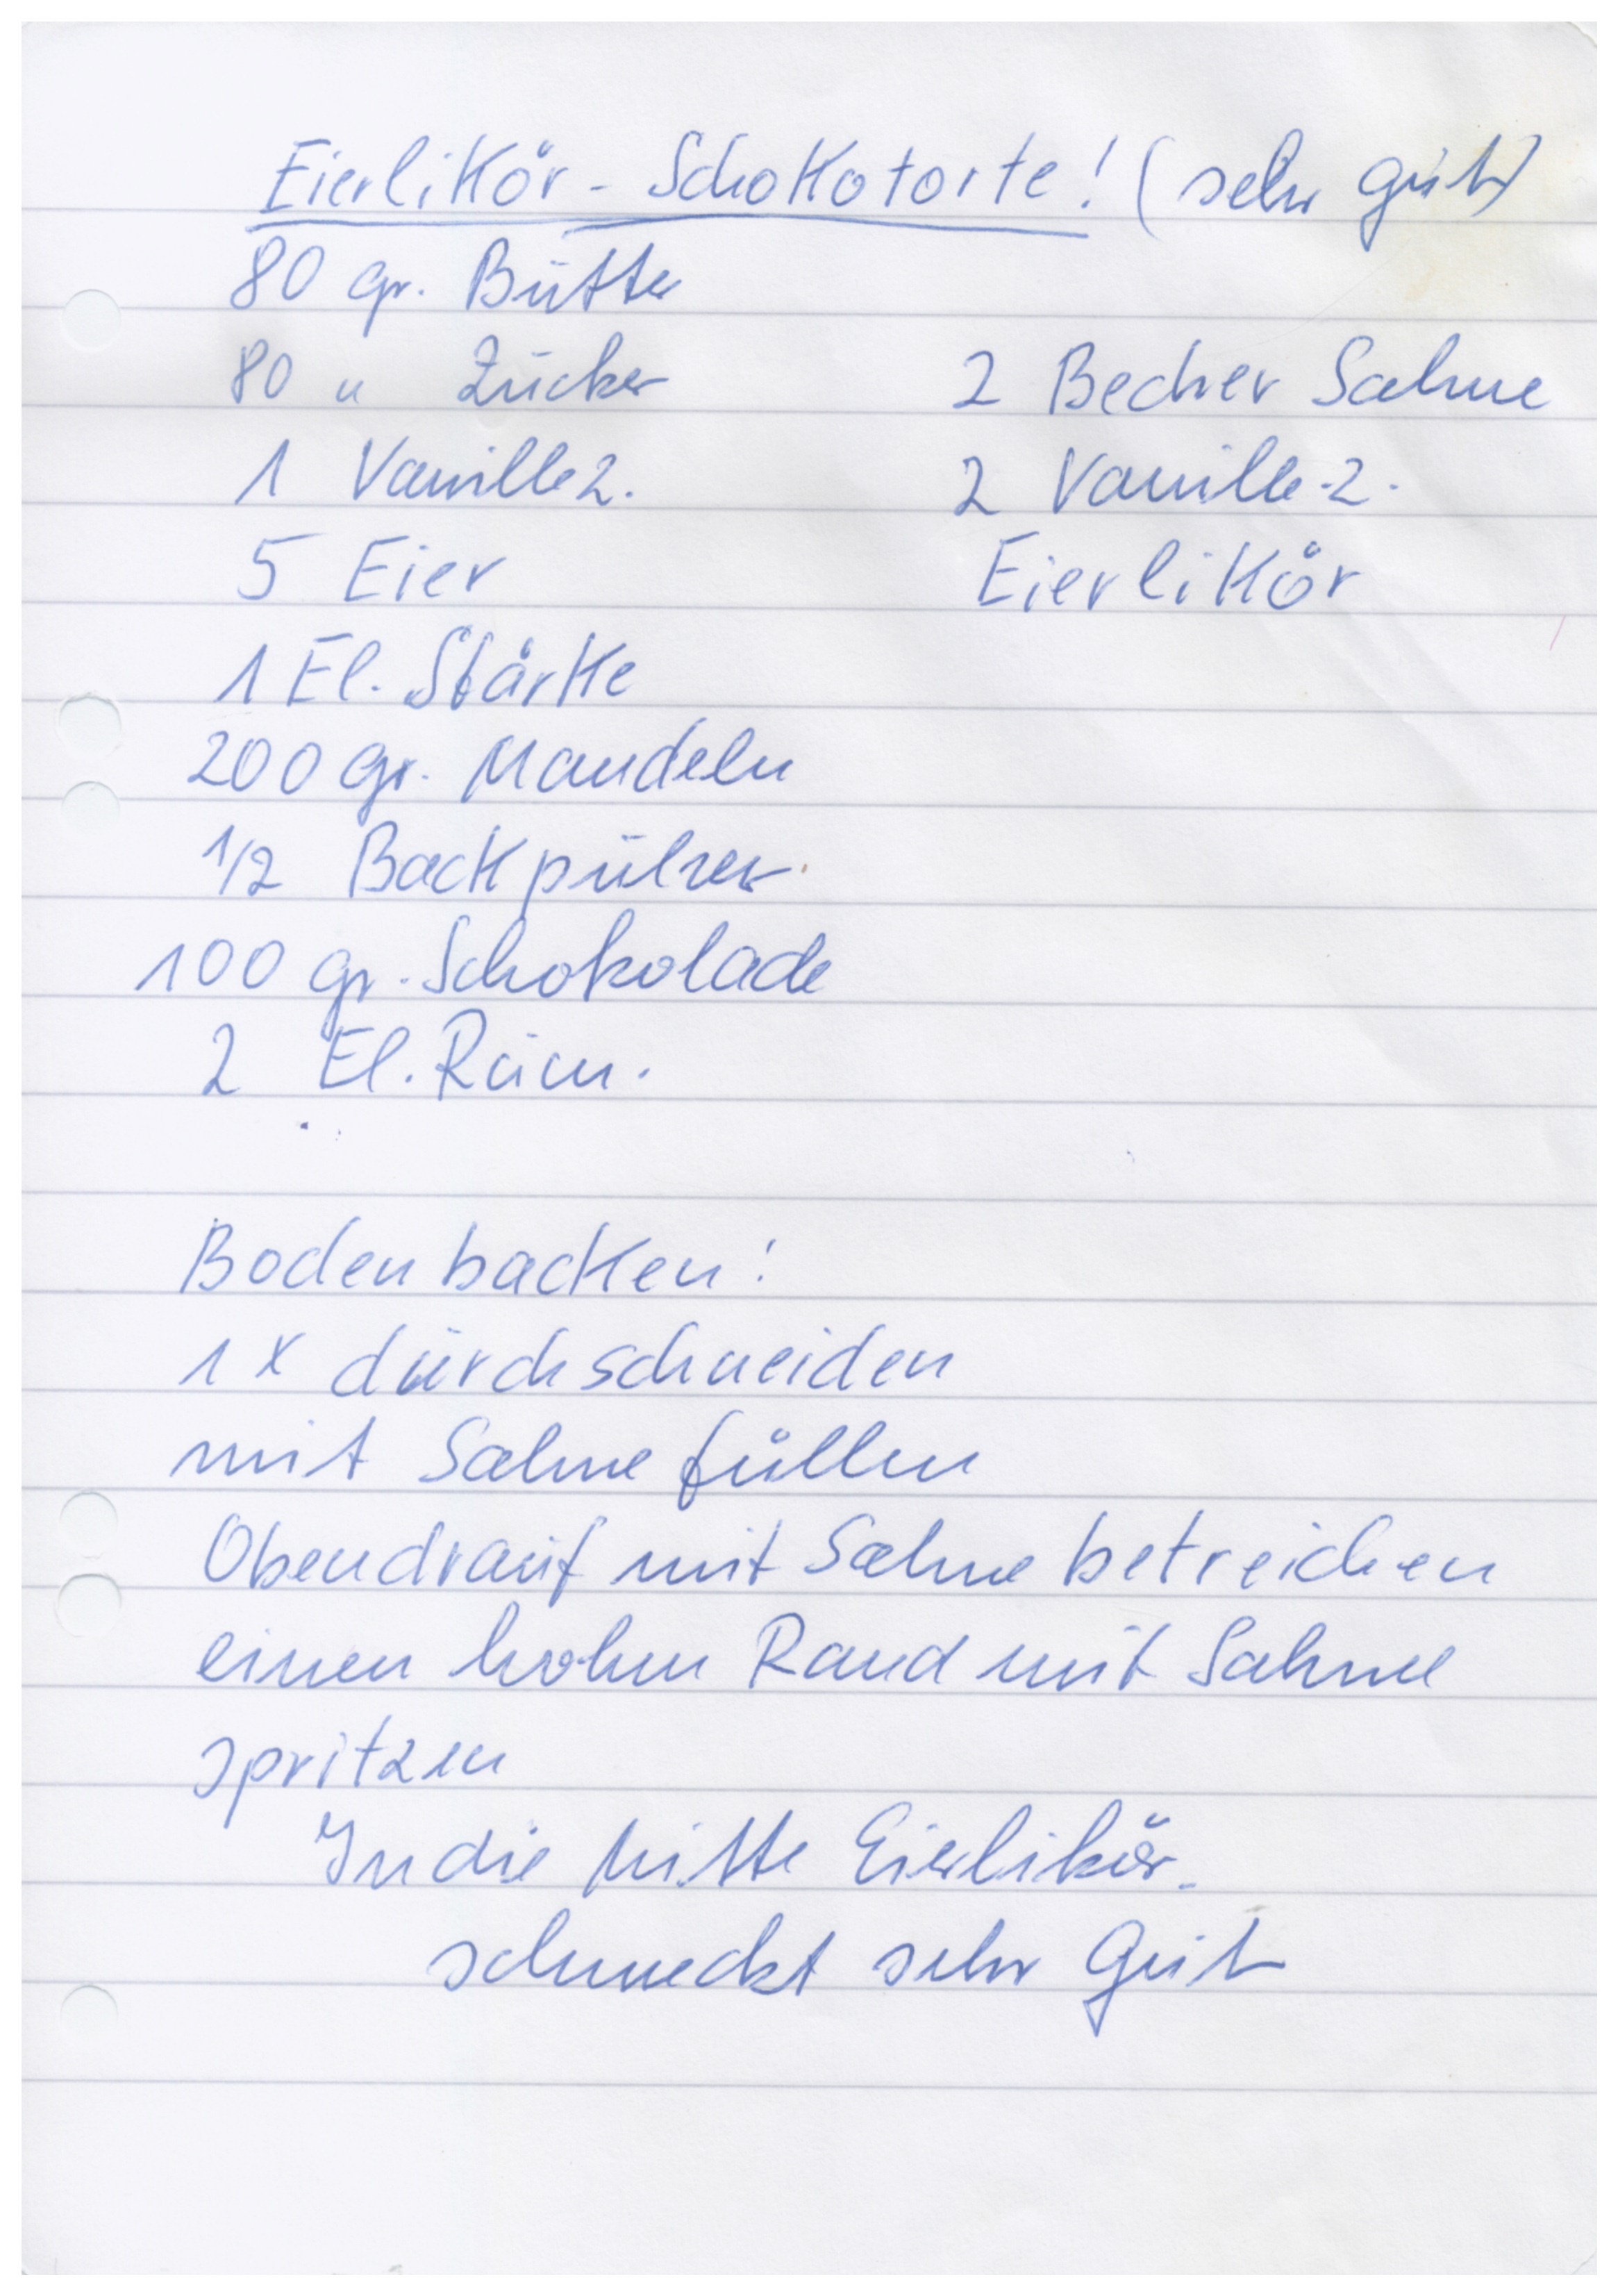 Eierlikör - Schokotorte! (sehr gut)
80 gr. Butter
80 " Zucker
1 Vanillez.
5 Eier
1 El. Stärke
200 gr. Mandeln
1/2 Backpulver
100 gr. Schokolade
2 El. Rum.
2 Becher Sahne
2 Vanille-Z.
Eierlikör
Boden backen!
1x durchschneiden
mit Sahne füllen
Obendrauf mit Sahne betreichen
einen hohen Rand mit Sahne
spritzen
In die Mitte Eierlikör.
schmeckt sehr Gut